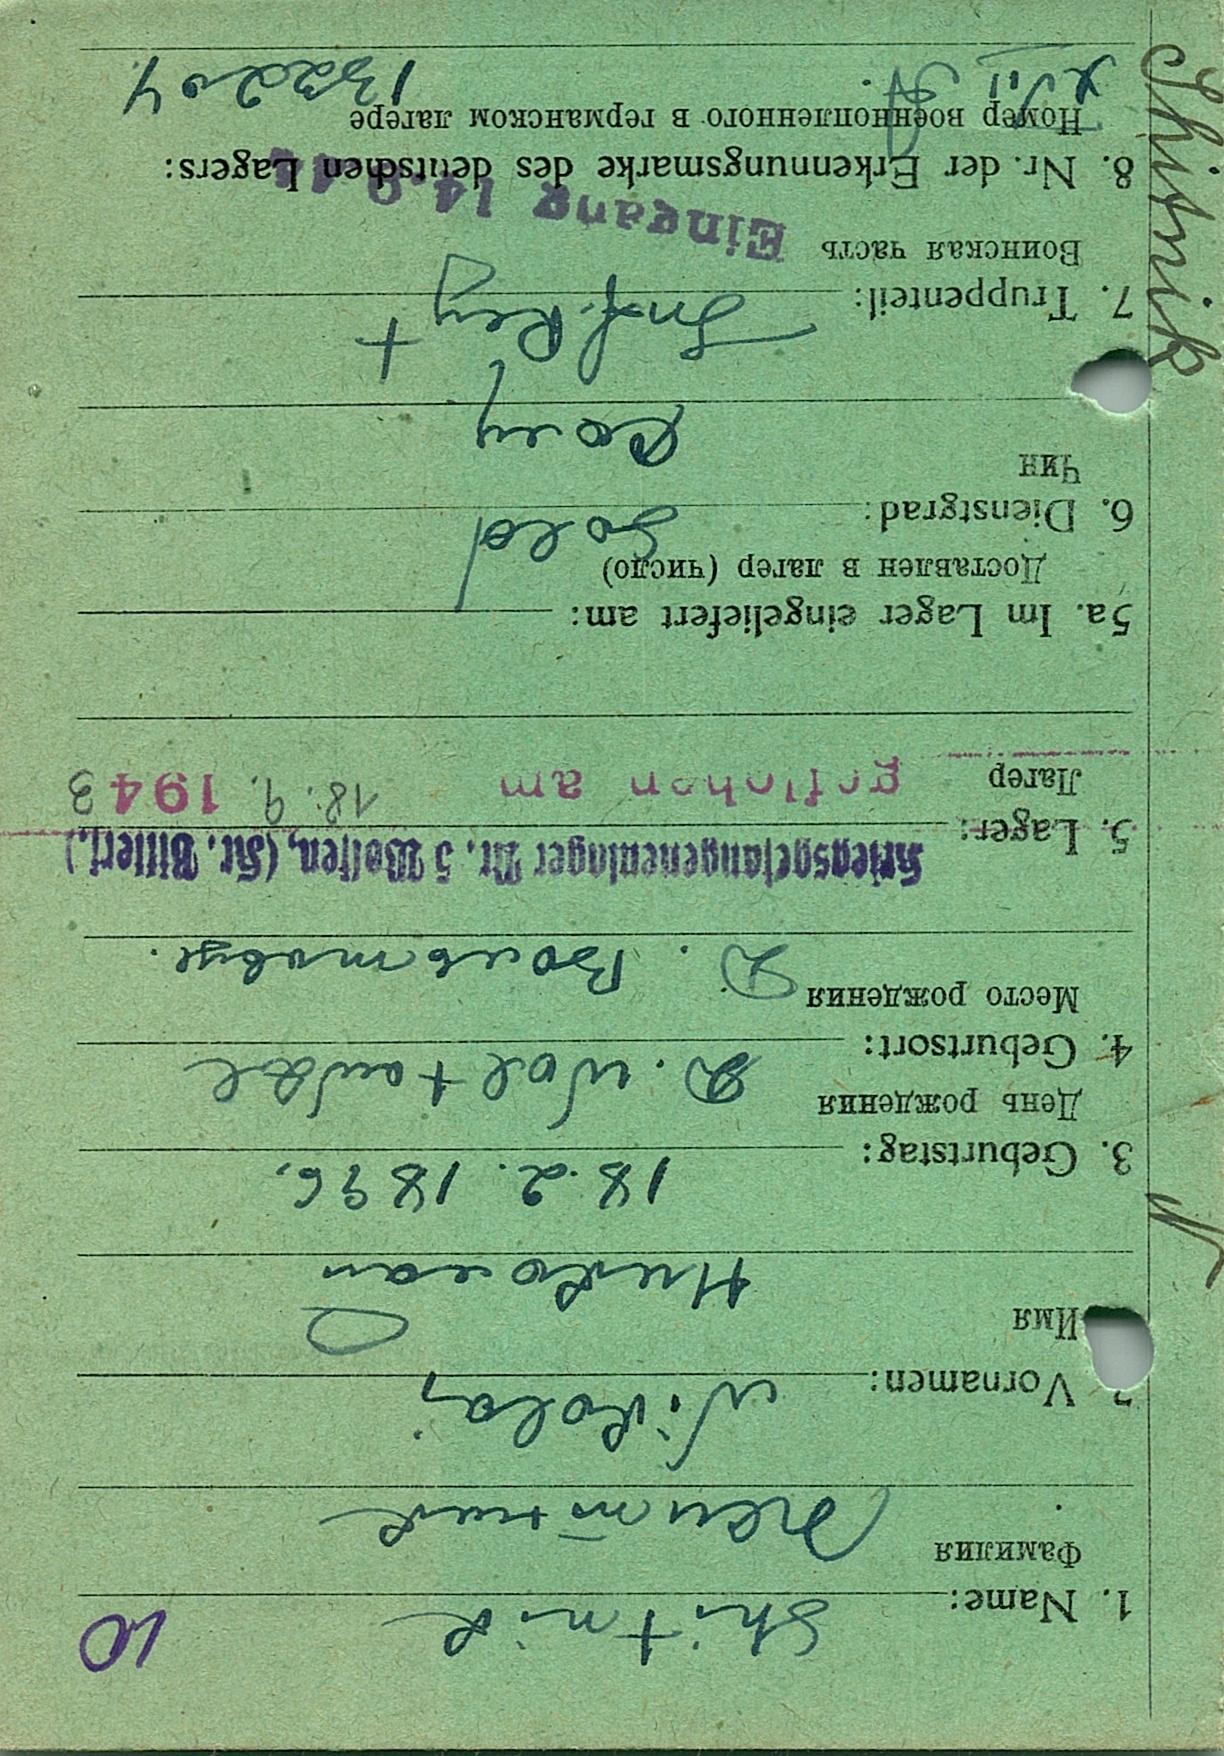 10
1. Name: Shitnik
Фамилия Житник
2. Vornamen: Nikolaj
Имя Николай
3. Geburtstag: 18.2.1896.
День рождения
4. Geburtsort: D.
Место рождения Д.
Kriegsgefangenenlager Nr. 5 Wolfen, (Kr. Bitterf.)
5. Lager:
Лагер geflohen am 18.9.1943
5a. Im Lager eingeliefert am:
Доставлен в лагер (число)
6. Dienstgrad: Sold
Чин
7. Truppenteil: Inf. Regt
Воинская часть Eingang 14.9.
8. Nr. der Erkennungsmarke des deutschen Lagers:
Номер военнопленного в германском лагере
XVII A. 132204
Shitnik N